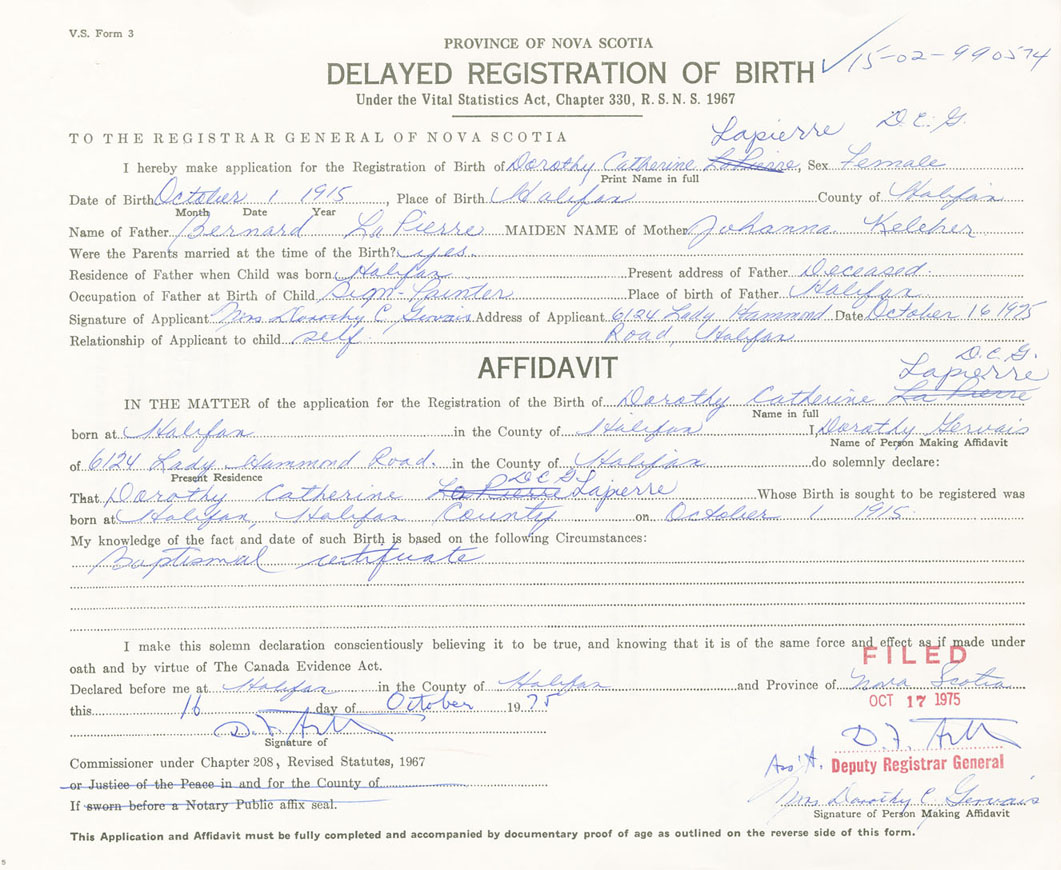 V.S. Form 3
PROVINCE OF NOVA SCOTIA
DELAYED REGISTRATION OF BIRTH ✓15-02-990574
Under the Vital Statistics Act, Chapter 330, R.S.N.S. 1967
TO THE REGISTRAR GENERAL OF NOVA SCOTIA
Lapierre D.C.G.
I hereby make application for the Registration of Birth of Dorothy Catherine LaPierre, Sex Female
Print Name in full
Date of Birth October 1 1915, Place of Birth Halifax County of Halifax
Month Date Year
Name of Father Bernard La Pierre MAIDEN NAME of Mother Johanna Kelcher
Were the Parents married at the time of the Birth? yes.
Residence of Father when Child was born Halifax Present address of Father Deceased.
Occupation of Father at Birth of Child Sign-Painter Place of birth of Father Halifax
Signature of Applicant Mrs Dorothy C. Gervais Address of Applicant 6124 Lady Hammond Date October 16 1975
Relationship of Applicant to child self Road, Halifax
AFFIDAVIT
D.C.G.
Lapierre
IN THE MATTER of the application for the Registration of the Birth of Dorothy Catherine La Pierre
Name in full
born at Halifax in the County of Halifax I, Dorothy Gervais
Name of Person Making Affidavit
of 6124 Lady Hammond Road. in the County of Halifax do solemnly declare:
Present Residence
D C G
That Dorothy Catherine La Pierre Lapierre Whose Birth is sought to be registered was
born at Halifax, Halifax County on October 1 1915.
My knowledge of the fact and date of such Birth is based on the following Circumstances:
Baptismal certifuate
I make this solemn declaration conscientiously believing it to be true, and knowing that it is of the same force and effect as if made under
oath and by virtue of The Canada Evidence Act.
FILED
Declared before me at Halifax in the County of Halifax and Province of Nova Scotia
OCT 17 1975
this 16 day of October 1975
D. F. Arth
Signature of
D. F. Arth
Commissioner under Chapter 208, Revised Statutes, 1967
Ass't. Deputy Registrar General
or Justice of the Peace in and for the County of
Mrs Dorothy C Gervais
If sworn before a Notary Public affix seal.
Signature of Person Making Affidavit
This Application and Affidavit must be fully completed and accompanied by documentary proof of age as outlined on the reverse side of this form.
5